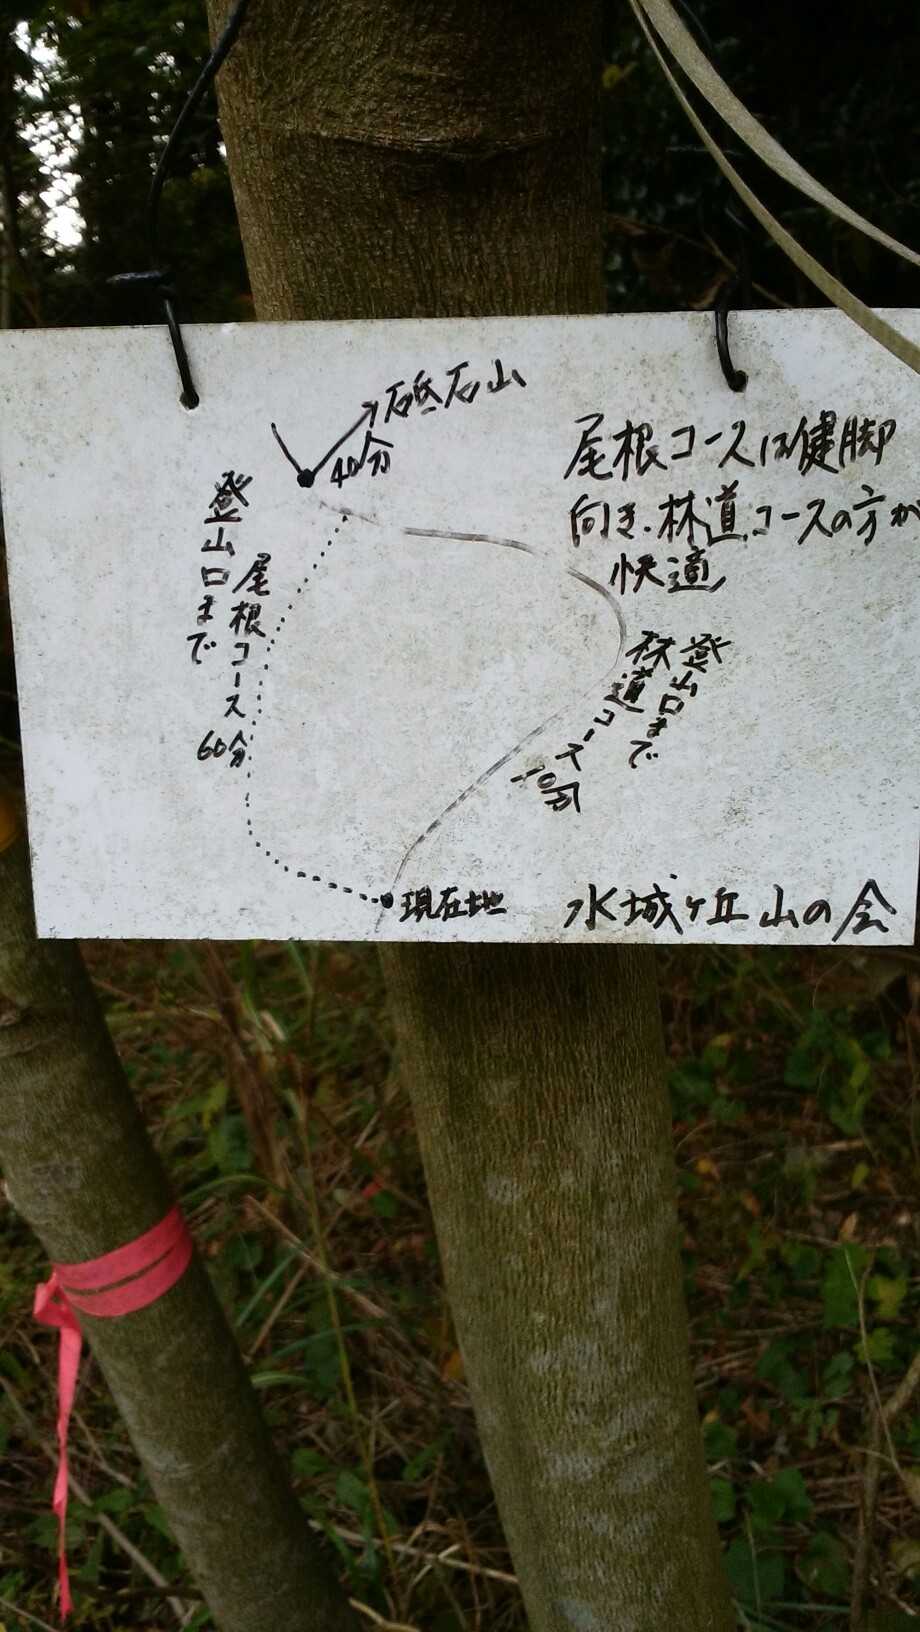 砥石山
40分
尾根コースは健脚
向き.林道コースの方が
快適
登山口まで
尾根コース 60分
登山口まで
林道コース 10分
現在地
水城ヶ丘山の会